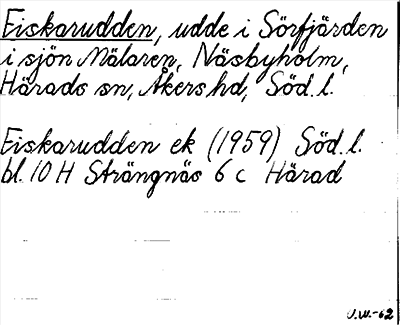 Fiskarudden, udde i Sörfjärden
i sjön Mälaren, Näsbyholm,
Härads sn, Åkers hd, Söd. l.
Fiskarudden ek (1959) Söd. l.
bl. 10 H Strängnäs 6 c Härad
V.W.-62